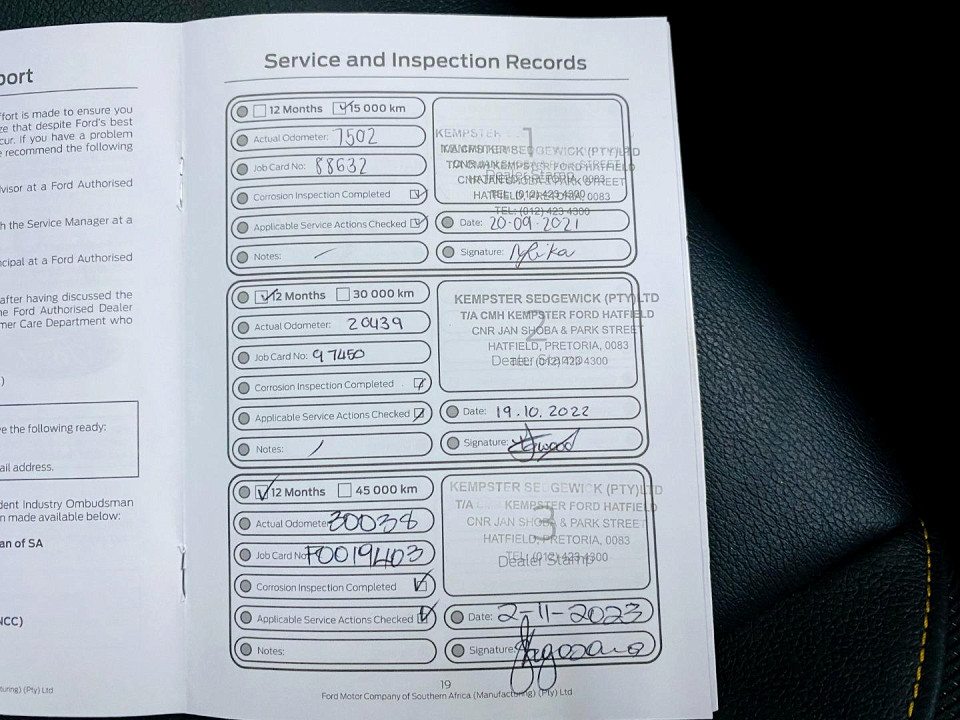 port
ffort is made to ensure you
ze that despite Ford's best
cur. If you have a problem
e recommend the following
dvisor at a Ford Authorised
h the Service Manager at a
ncipal at a Ford Authorised
after having discussed the
he Ford Authorised Dealer
mer Care Department who
)
ve the following ready:
ail address.
dent Industry Ombudsman
n made available below:
an of SA
NCC)
turing) (Pty) Ltd
Service and Inspection Records
12 Months 15 000 km
Actual Odometer: 7502
Job Card No: 88632
Corrosion Inspection Completed
Applicable Service Actions Checked
Notes:
1
KEMPSTER SEDGEWICK (PTY)LTD
T/A CMH KEMPSTER FORD HATFIELD
CNR JAN SHOBA & PARK STREET
HATFIELD, PRETORIA, 0083
TEL: (012) 423 4300
Dealer Stamp
Date: 20-09-2021
Signature:
12 Months 30 000 km
Actual Odometer: 20439
Job Card No: 97450
Corrosion Inspection Completed
Applicable Service Actions Checked
Notes:
KEMPSTER SEDGEWICK (PTY)LTD
T/A CMH KEMPSTER FORD HATFIELD
2
CNR JAN SHOBA & PARK STREET
HATFIELD, PRETORIA, 0083
TEL: (012) 423 4300
Dealer Stamp
Date: 19.10.2022
Signature:
12 Months 45 000 km
Actual Odometer: 30038
Job Card No: F0019403
Corrosion Inspection Completed
Applicable Service Actions Checked
Notes:
KEMPSTER SEDGEWICK (PTY)LTD
T/A KEMPSTER FORD HATFIELD
3
CNR JAN SHOBA & PARK STREET
HATFIELD, PRETORIA, 0083
TEL: (012) 423 4300
Dealer Stamp
Date: 2-11-2023
Signature:
19
Ford Motor Company of Southern Africa (Manufacturing) (Pty) Ltd